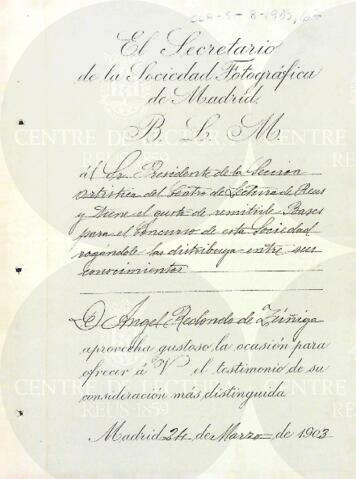 El Secretario
de la Sociedad Fotográfica
de Madrid.
B. L. M.
al Sr. Presidente de la Seccion
artistica del Centro de Lectura de Reus
y tiene el gusto de remitirle Bases
para el Concurso de esta Sociedad
rogandole las distribuya entre sus
conocimientos
D Angel Redondo de Zúñiga
aprovecha gustoso la ocasión para
ofrecer á V el testimonio de su
consideración más distinguida
Madrid 24 de Marzo de 1903
CENTRE DE LECTURA
REUS 1859
CENTRE DE LECTURA
REUS 1859